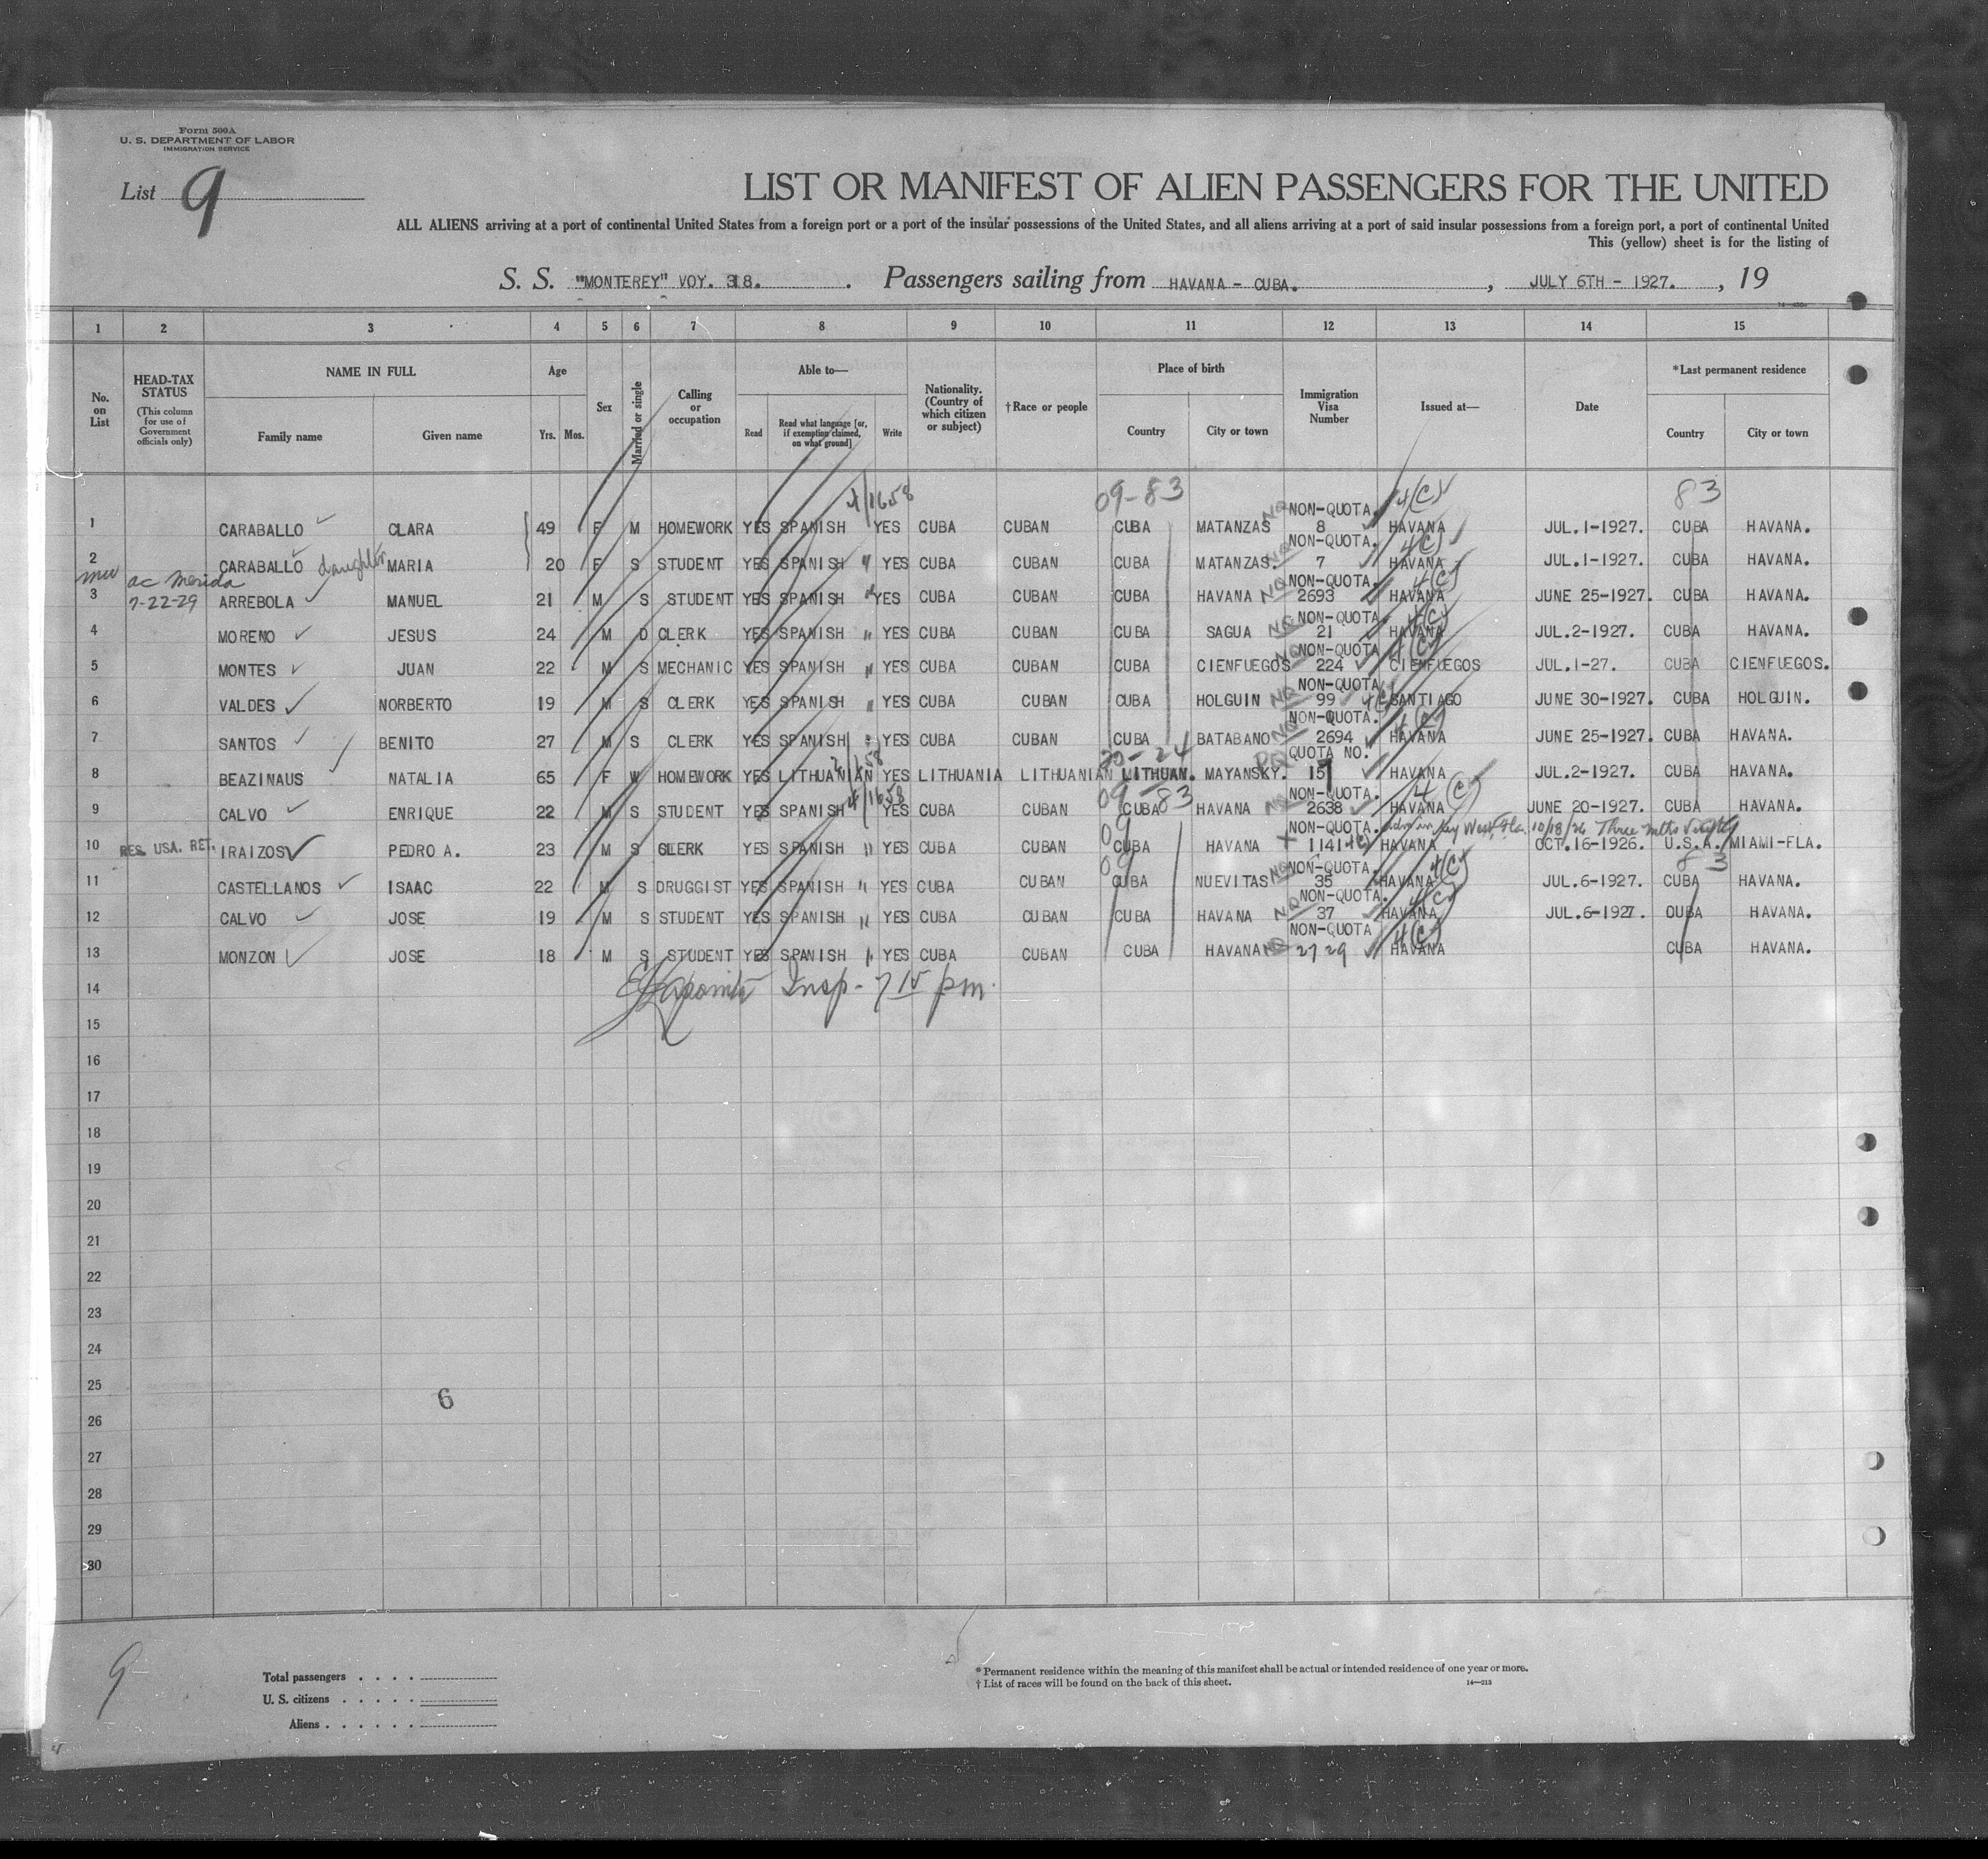 Form 500A
U. S. DEPARTMENT OF LABOR
IMMIGRATION SERVICE
List 9
LIST OR MANIFEST OF ALIEN PASSENGERS FOR THE UNITED
ALL ALIENS arriving at a port of continental United States from a foreign port or a port of the insular possessions of the United States, and all aliens arriving at a port of said insular possessions from a foreign port, a port of continental United
This (yellow) sheet is for the listing of
S. S. "MONTEREY" VOY. 318. Passengers sailing from HAVANA - CUBA. , JULY 6TH - 1927. , 19
1 2 3 4 5 6 7 8 9 10 11 12 13 14 15
No. on List HEAD-TAX STATUS (This column for use of Government officials only) NAME IN FULL Family name Given name Age Yrs. Mos. Sex Married or single Calling or occupation Able to— Read Read what language [or, if exemption claimed, on what ground] Write Nationality. (Country of which citizen or subject) †Race or people Place of birth Country City or town Immigration Visa Number Issued at— Date *Last permanent residence Country City or town
4/1658 09-83 4(C) 83
1 CARABALLO CLARA 49 F M HOMEWORK YES SPANISH YES CUBA CUBAN CUBA MATANZAS NQ NON-QUOTA. 8 HAVANA JUL.1-1927. CUBA HAVANA.
2 CARABALLO daughter MARIA 20 F S STUDENT YES SPANISH " YES CUBA CUBAN CUBA MATANZAS. NQ NON-QUOTA. 7 4(C) HAVANA JUL.1-1927. CUBA HAVANA.
ac Merida
3 7-22-29 ARREBOLA MANUEL 21 M S STUDENT YES SPANISH " YES CUBA CUBAN CUBA HAVANA NQ NON-QUOTA. 2693 4(C) HAVANA JUNE 25-1927. CUBA HAVANA.
4 MORENO JESUS 24 M D CLERK YES SPANISH " YES CUBA CUBAN CUBA SAGUA NQ NON-QUOTA. 21 4(C) HAVANA JUL.2-1927. CUBA HAVANA.
5 MONTES JUAN 22 M S MECHANIC YES SPANISH " YES CUBA CUBAN CUBA CIENFUEGOS NQ NON-QUOTA 224 4(C) CIENFUEGOS JUL.1-27. CUBA CIENFUEGOS.
6 VALDES NORBERTO 19 M S CLERK YES SPANISH " YES CUBA CUBAN CUBA HOLGUIN NQ NON-QUOTA 99 4(C) SANTIAGO JUNE 30-1927. CUBA HOLGUIN.
7 SANTOS BENITO 27 M S CLERK YES SPANISH " YES CUBA CUBAN CUBA BATABANO NQ NON-QUOTA. 2694 4(C) HAVANA JUNE 25-1927. CUBA HAVANA.
8 BEAZINAUS NATALIA 65 F W HOMEWORK YES LITHUANIAN YES LITHUANIA LITHUANIAN LITHUAN. MAYANSKY. QUOTA NO. 157 HAVANA JUL.2-1927. CUBA HAVANA.
4/1658 09 83
9 CALVO ENRIQUE 22 M S STUDENT YES SPANISH YES CUBA CUBAN CUBA HAVANA NQ NON-QUOTA. 2638 4(C) HAVANA JUNE 20-1927. CUBA HAVANA.
Key West, Fla. 10/18/26 Three mths
10 RES. USA. RET. IRAIZOS PEDRO A. 23 M S CLERK YES SPANISH " YES CUBA CUBAN CUBA HAVANA NON-QUOTA. 1141 4(C) HAVANA OCT.16-1926. U.S.A. MIAMI-FLA.
09 83
11 CASTELLANOS ISAAC 22 M S DRUGGIST YES SPANISH " YES CUBA CUBAN CUBA NUEVITAS NQ NON-QUOTA. 35 HAVANA 4(C) JUL.6-1927. CUBA HAVANA.
12 CALVO JOSE 19 M S STUDENT YES SPANISH " YES CUBA CUBAN CUBA HAVANA NQ NON-QUOTA. 37 4(C) HAVANA JUL.6-1927. OUBA HAVANA.
13 MONZON JOSE 18 M S STUDENT YES SPANISH " YES CUBA CUBAN CUBA HAVANA NQ NON-QUOTA 2729 4(C) HAVANA CUBA HAVANA.
14 Insp - 7 15 pm.
15
16
17
18
19
20
21
22
23
24
25
6
26
27
28
29
30
9
Total passengers
U. S. citizens
Aliens
* Permanent residence within the meaning of this manifest shall be actual or intended residence of one year or more.
† List of races will be found on the back of this sheet.
14—213